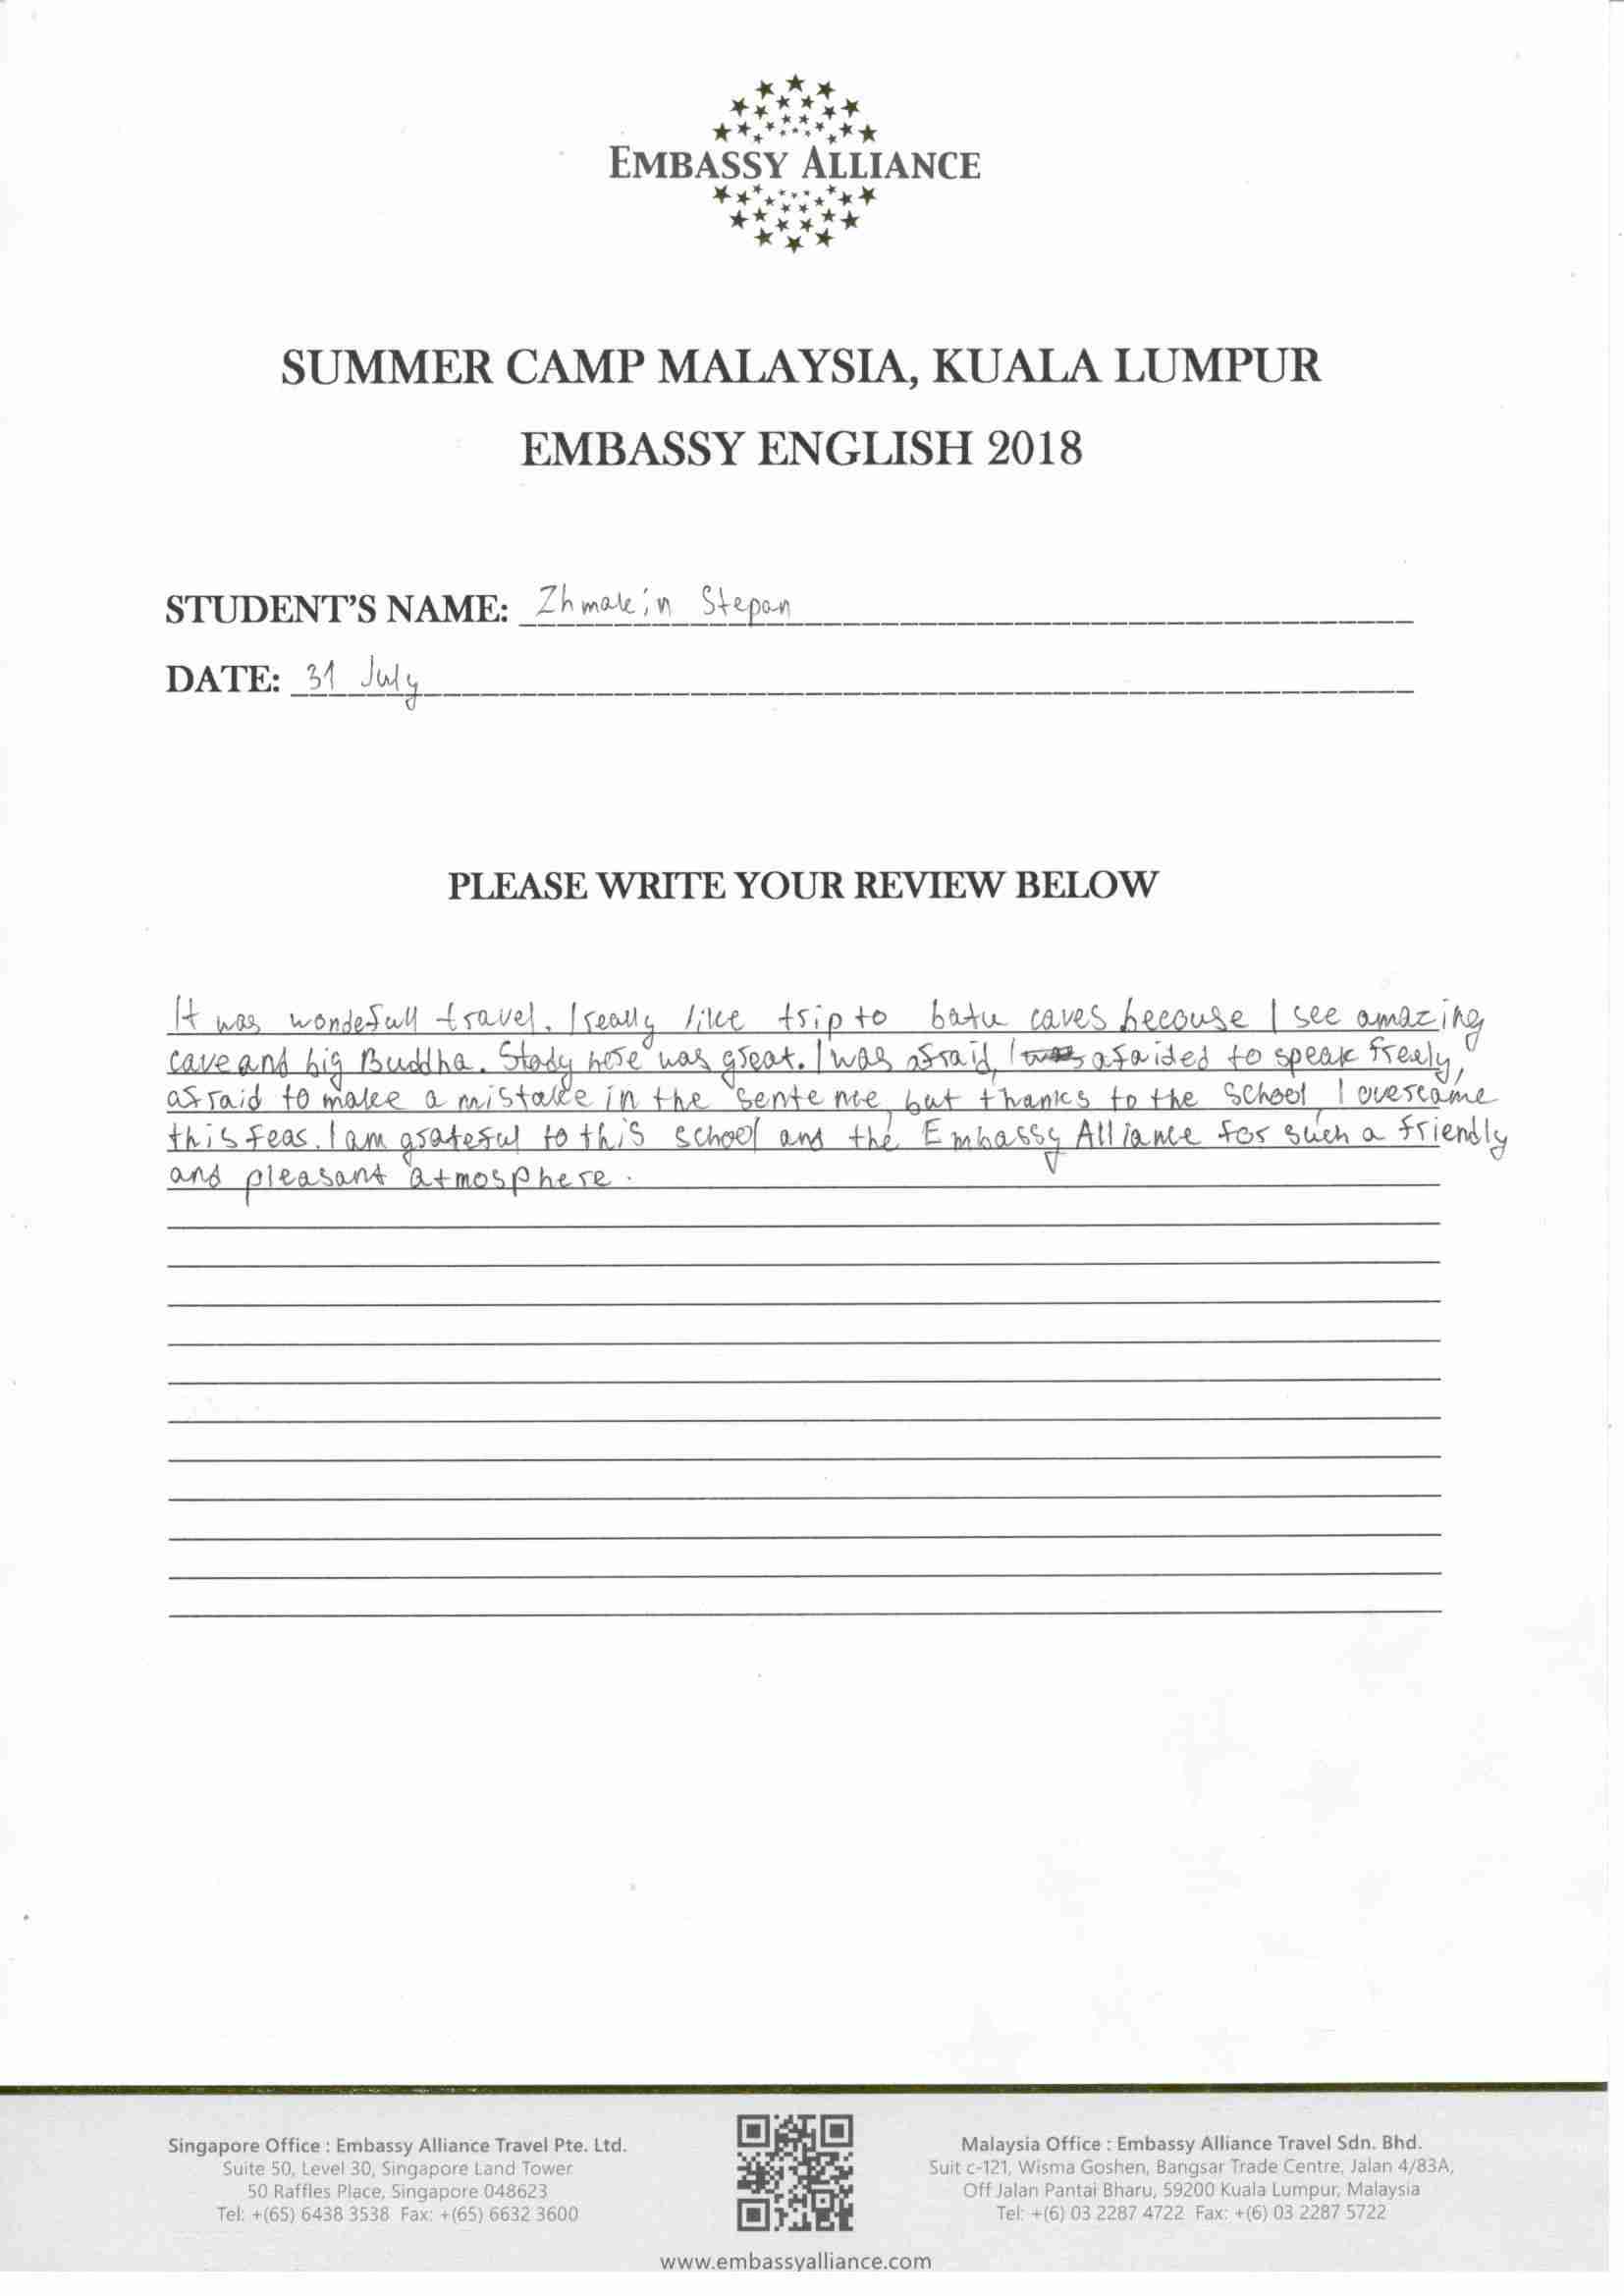 EMBASSY ALLIANCE
SUMMER CAMP MALAYSIA, KUALA LUMPUR
EMBASSY ENGLISH 2018
STUDENT'S NAME: Zhmakin Stepan
DATE: 31 July
PLEASE WRITE YOUR REVIEW BELOW
It was wondefull travel. I really like trip to batu caves becouse I see amazing
cave and big Buddha. Stady here was great. I was afraid, I was afaided to speak freely,
afraid to make a mistake in the sentence, but thanks to the school, I overcame
this fear. I am grateful to this school and the Embassy Alliance for such a friendly
and pleasant atmosphere.
Singapore Office : Embassy Alliance Travel Pte. Ltd.
Suite 50, Level 30, Singapore Land Tower
50 Raffles Place, Singapore 048623
Tel: +(65) 6438 3538 Fax: +(65) 6632 3600
Malaysia Office : Embassy Alliance Travel Sdn. Bhd.
Suit c-121, Wisma Goshen, Bangsar Trade Centre, Jalan 4/83A,
Off Jalan Pantai Bharu, 59200 Kuala Lumpur, Malaysia
Tel: +(6) 03 2287 4722 Fax: +(6) 03 2287 5722
www.embassyalliance.com